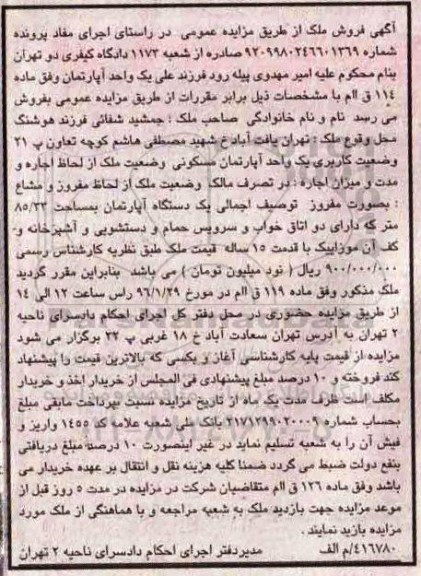 آگهی فروش ملک از طریق مزایده عمومی در راستای اجرای مفاد پرونده
شماره ۹۲۰۹۹۸۰۲۴۶۶۰۱۳۶۹ صادره از شعبه ۱۱۷۳ دادگاه کیفری دو تهران
بنام محکوم علیه امیر مهدوی پیله رود فرزند علی یک واحد آپارتمان وفق ماده
۱۱۴ ق اام با مشخصات ذیل برابر مقررات از طریق مزایده عمومی بفروش
می رسد نام و نام خانوادگی صاحب ملک : جمشید شفائی فرزند هوشنگ
محل وقوع ملک : تهران یافت آباد خ شهید مصطفی هاشم کوچه تعاون پ ۲۱
وضعیت کاربری یک واحد آپارتمان مسکونی وضعیت ملک از لحاظ اجاره و
مدت و میزان اجاره : در تصرف مالک وضعیت ملک از لحاظ مفروز و مشاع
: بصورت مفروز توصیف اجمالی یک دستگاه آپارتمان بمساحت ۸۵/۳۳
متر که دارای دو اتاق خواب و سرویس حمام و دستشویی و آشپزخانه و
کف آن موزاییک با قدمت ۱۵ ساله قیمت ملک طبق نظریه کارشناس رسمی
۹۰۰/۰۰۰/۰۰۰ ریال ( نود میلیون تومان ) می باشد بنابراین مقرر گردید
ملک مذکور وفق ماده ۱۱۹ ق اام در مورخ ۹۶/۱/۲۹ راس ساعت ۱۲ الی ۱۴
از طریق مزایده حضوری در محل دفتر کل اجرای احکام دادسرای ناحیه
۲ تهران به آدرس تهران سعادت آباد خ ۱۸ غربی پ ۲۲ برگزار می شود
مزایده از قیمت پایه کارشناسی آغاز و بکسی که بالاترین قیمت را پیشنهاد
کند فروخته و ۱۰ درصد مبلغ پیشنهادی فی المجلس از خریدار اخذ و خریدار
مکلف است ظرف مدت یک ماه از تاریخ مزایده نسبت بپرداخت مابقی مبلغ
بحساب شماره ۲۱۷۱۲۹۹۰۲۰۰۰۹ بانک ملی شعبه علامه کد ۱۴۵۵ واریز و
فیش آن را به شعبه تسلیم نماید در غیر اینصورت ۱۰ درصد مبلغ دریافتی
بنفع دولت ضبط می گردد ضمنا کلیه هزینه نقل و انتقال بر عهده خریدار می
باشد وفق ماده ۱۲۶ ق اام متقاضیان شرکت در مزایده در مدت ۵ روز قبل از
موعد مزایده جهت بازدید ملک به شعبه مراجعه و با هماهنگی از ملک مورد
مزایده بازید نمایند .
۴۱۶۷۸۰/م الف مدیردفتر اجرای احکام دادسرای ناحیه ۲ تهران